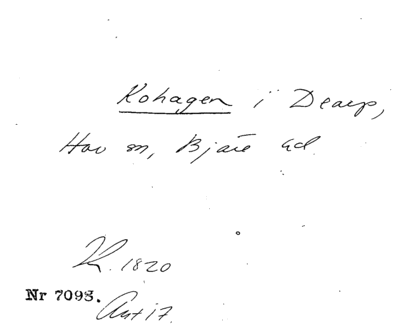 Kohagen i Dearp,
Hov sn, Bjäre hd.
1820
Nr 7098.
Ant 17.